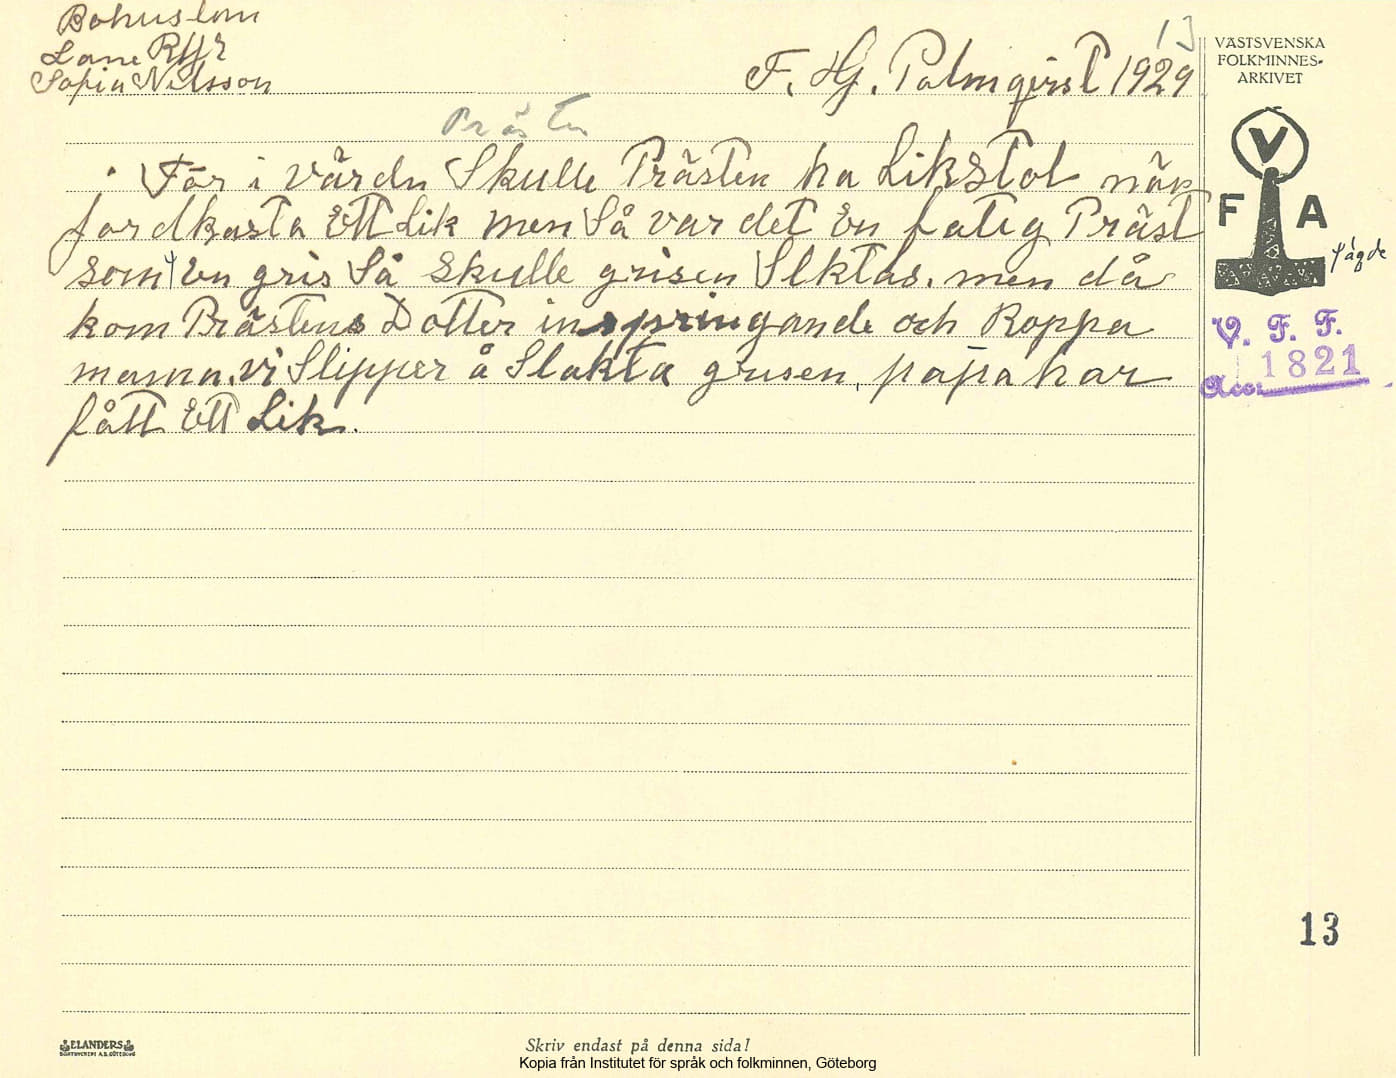 Bohuslän
Lane Ryr
Sofia Nilsson
F. Hj. Palmqvist 1929
13
VÄSTSVENSKA
FOLKMINNES-
ARKIVET
V
F A
Prästen
För i värdn Skulle Prästen ha Likstol när
jordkasta Ett Lik men Så var det En fatig Präst
som en gris Så skulle grisen Slktas. men då
ägde
kom Prästens Dotter inspringande och Roppa
mamma. vi Slipper å Slakta grisen, papa har
fått Ett Lik.
V. F. F.
Acc: 1821
13
ELANDERS
BOKTRYCKERI A.B. GÖTEBORG
Skriv endast på denna sida!
Kopia från Institutet för språk och folkminnen, Göteborg